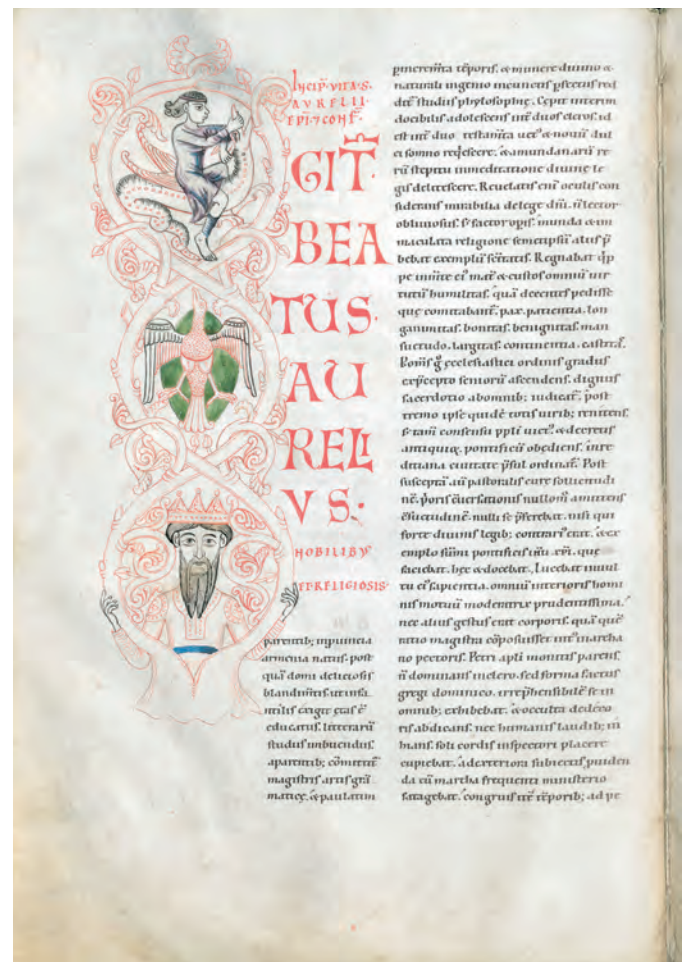 Incip̄. VITA. S.
AVRELII.
EPI. 7 CONF̄.
GIT̄.
BEA
TUS.
AU
RELI
VS:·
NOBILIBꝰ
ET RELIGIOSIS·
parentib; inprouincia
armenia natus. post
quā domi deliciosis
blandim̄tis ut infa
ntilis exigit etas ē
educatus. litterarū
studiis inbuendus
aparentib; cōmittit̄
magistris artis grā
matice. & paulatim
p increm̄ta tēporis. & munere diuino &
naturali ingenio
studiis phylosophię. Cepit interim
docibilis adolescens int̄ duos cleros. id
est int̄ duo testam̄ta uet̓ & nouū dul
ci somno reqͥescere. & amundanarū re
rū strepitu inmeditatione diuinę le
gis delitescere. Reuelatis enī oculis con
siderans mirabilia delege dn̄i. n̄ lector
obliuiosus. s; factor opis. munda & in
maculata religione semetipsū aliis p̄
bebat exemplū sc̄itatis. Regnabat qͥp
pe inmente ei᷒ mat̄ & custos omniū uir
tutū humilitas. quā decentes pedisse
quę comitabant̄. pax. patientia. lon
ganimitas. bonitas. benignitas. man
suetudo. largitas. continentia. castitas.
ęcclesiastici ordinis gradus
expcepto seniorū ascendens. dignus
sacerdotio abomnib; iudicat̄. post
tremo ipse quidē totis uirib; renitens.
s; tam̄ consensu ppli uict᷒. & decretis
antiquis pontificū obędiens. inre
ditiana ciuitate p̄sul ordinat̄. Post
susceptā aū pastoralis curę sollicitudi
nē. p̄oris cūersationis nullom̄ amittens
c̄suetudinē. nulli se p̄ferebat. nisi qui
forte diuinis legib; contrari᷒ erat. & ex
emplo sūmi pontificis
faciebat. hęc & docebat. Lucebat in uul
tu ei᷒ sapientia. omniū interioris homi
nis motuū moderatrix prudentissima.
nec alius gestus erat corporis. quā quē
ratio magistra cōposuisset int̓
pectoris. Petri apl̄i monitis parens.
n̄ dominans inclero. sed forma factus
gregi dominico. irrep̄hensibilē se in
omnib; exhibebat. & occulta dedeco
ris abdicans. nec humanis laudib; in
hians. soli cordis inspectori placere
cupiebat. ad exteriora subiectis puiden
da cū martha frequenti ministerio
satagebat. congruis it̄ tēporib; ad pe